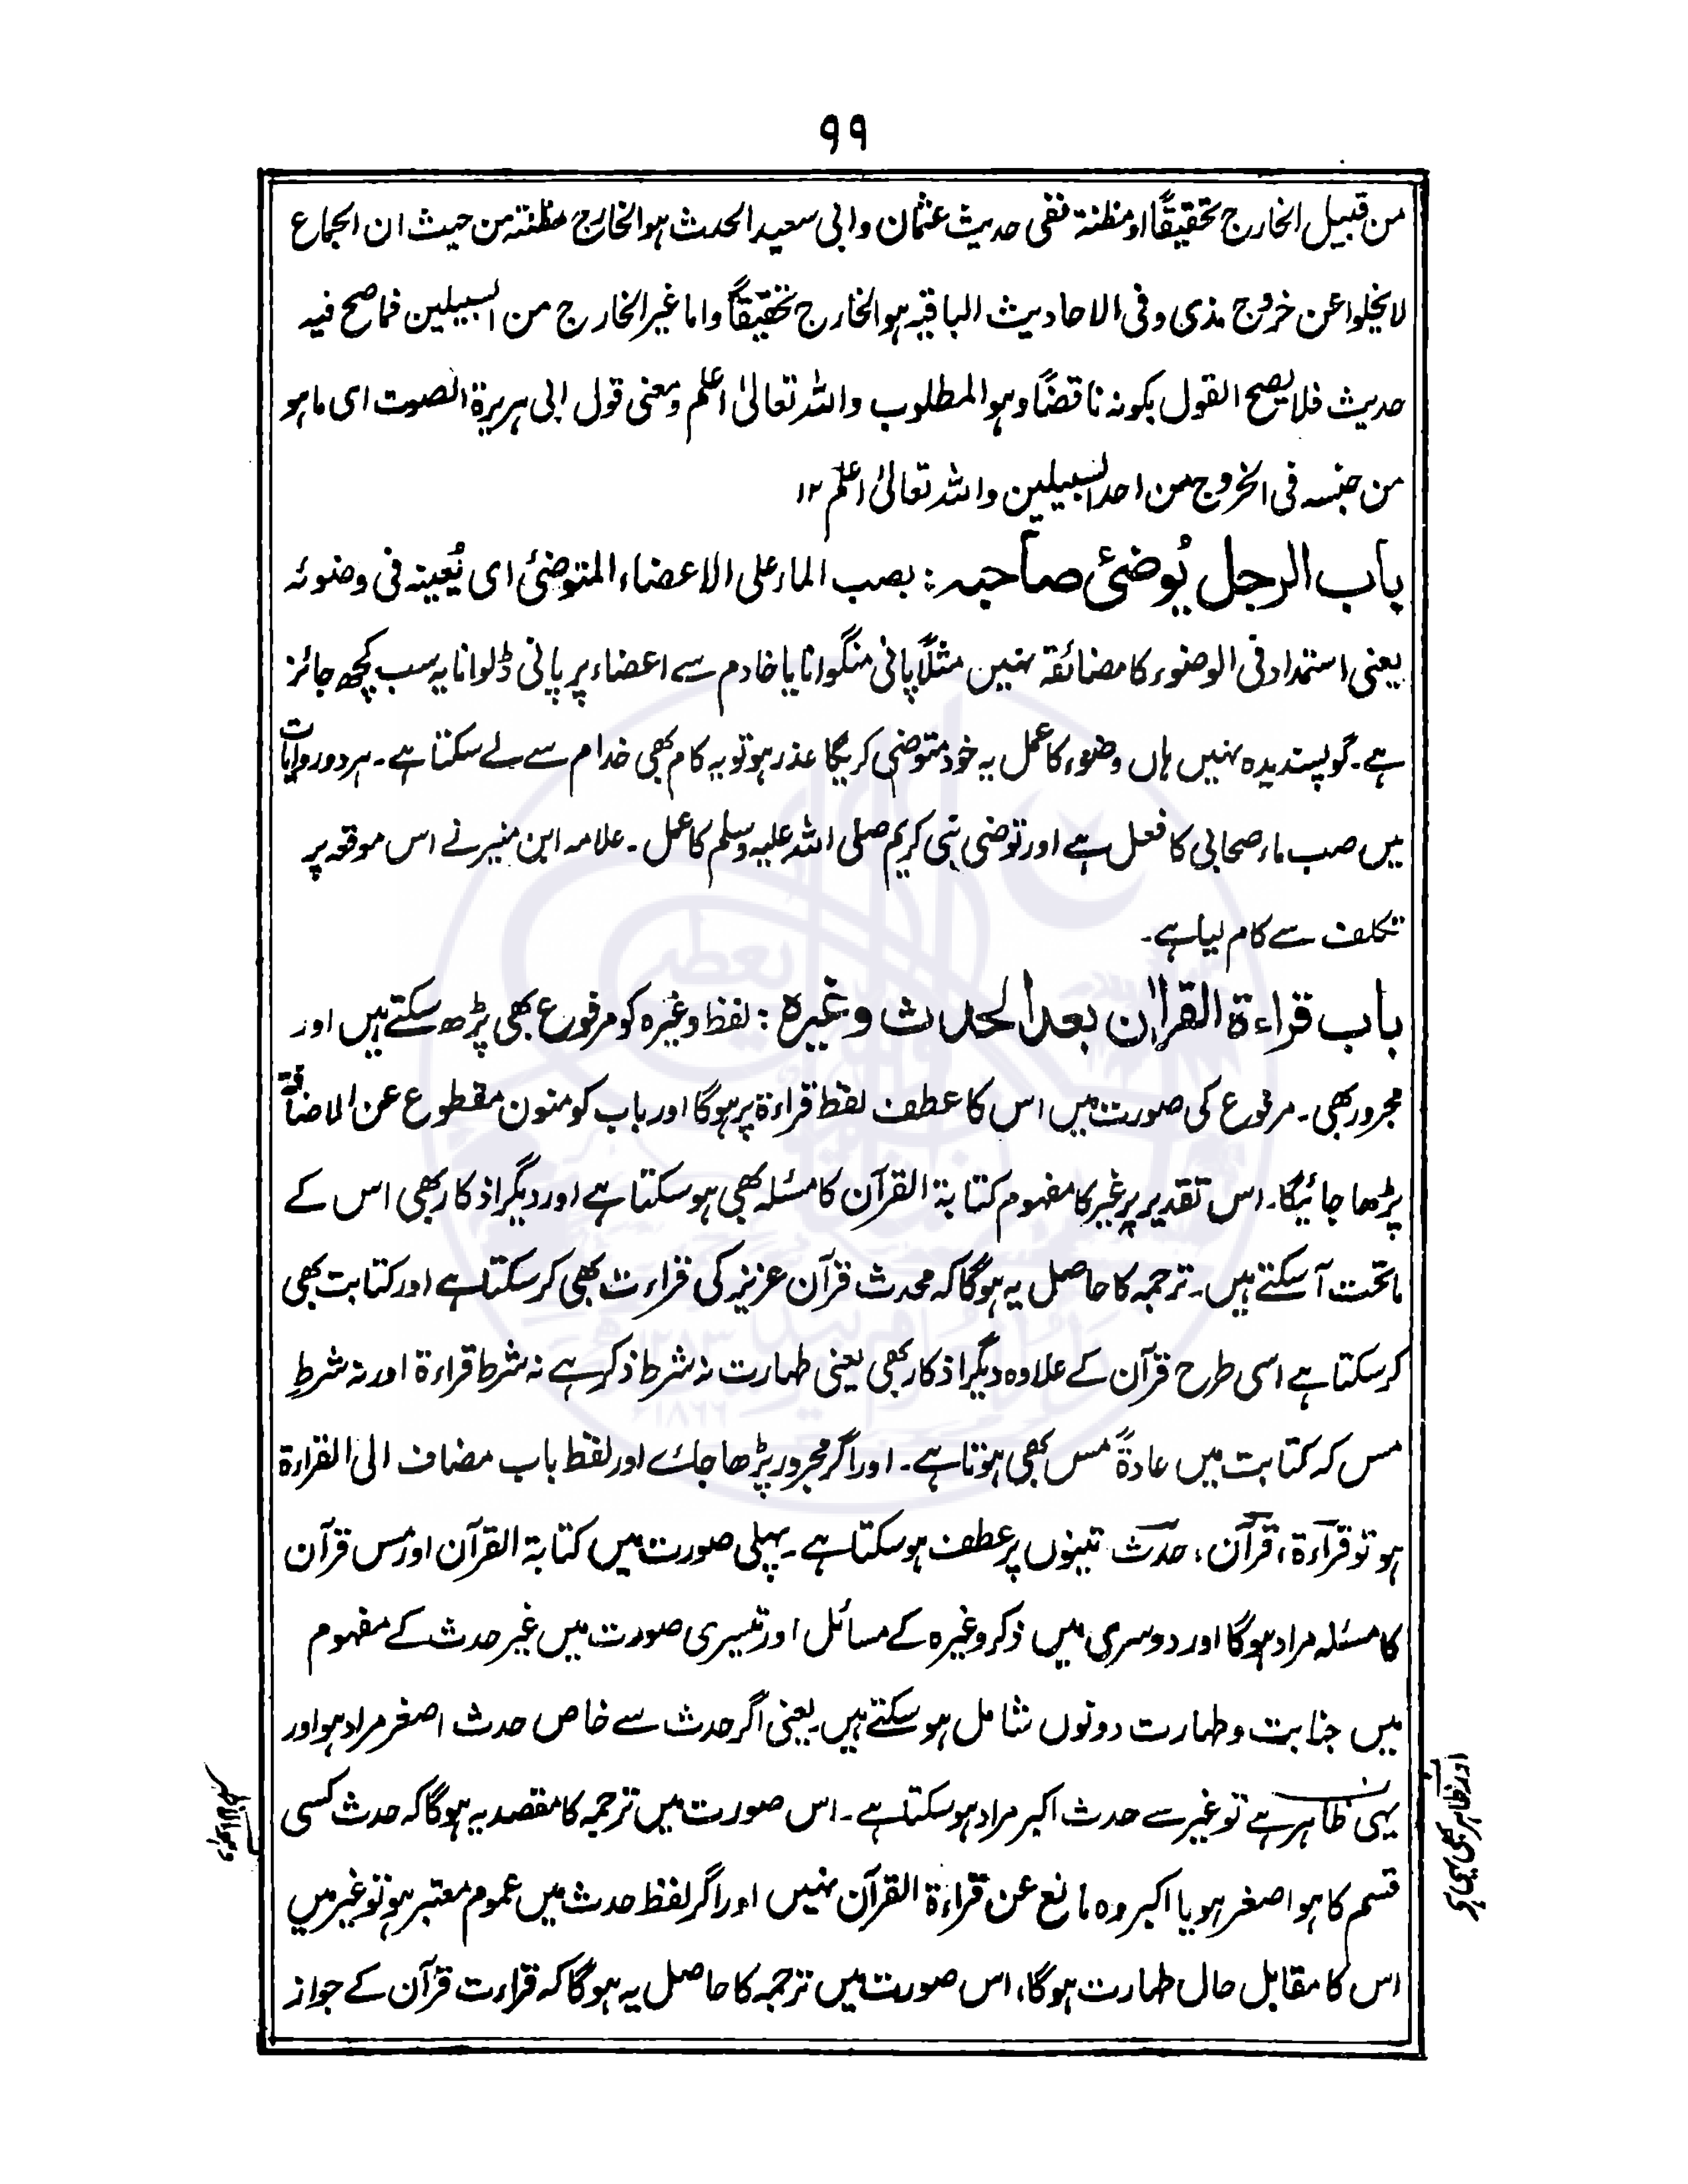 ۹۹
من قبیل الخارج تحقیقًا او مظنة ففی حدیث عثمان وابی سعید الحدث ہو الخارج مظنتہ من حیث ان الجماع
لا یخلوا عن خروج مذی وفی الاحادیث الباقیہ ہو الخارج تحقیقًا واما غیر الخارج من السبیلین فما صح فیہ
حدیث فلا یصح القول بکونہ ناقضًا وہو المطلوب واللہ تعالیٰ اعلم ومعنی قول ابی ہریرة الصوت ای ما ہو
من جنسہ فی الخروج من احد السبیلین واللہ تعالیٰ اعلم ۱۲
باب الرجل یُوضئ صاحبہ : بصب الماء علی الاعضاء المتوضئ ای یُعینہ فی وضوئہ
یعنی استمداد فی الوضوء کا مضائقہ نہیں مثلاً پانی منگوانا یا خادم سے اعضاء پر پانی ڈلوانا یہ سب کچھ جائز
ہے۔ گو پسندیدہ نہیں ہاں وضوء کا عمل یہ خود متوضی کریگا عذر ہو تو یہ کام بھی خدام سے لے سکتا ہے۔ ہر دو روایات
میں صب ماء صحابی کا فعل ہے اور توضی نبی کریم صلی اللہ علیہ وسلم کا عمل۔ علامہ ابن منیر نے اس موقعہ پر
تکلف سے کام لیا ہے۔
باب قراءة القراٰن بعد الحدث وغیرہ : لفظ وغیرہ کو مرفوع بھی پڑھ سکتے ہیں اور
مجرور بھی۔ مرفوع کی صورت میں اس کا عطف لفظ قراءة پر ہوگا اور باب کو منون مقطوع عن الاضافة
پڑھا جائیگا۔ اس تقدیر پر غیر کا مفہوم کتابة القرآن کا مسئلہ بھی ہو سکتا ہے اور دیگر اذکار بھی اس کے
ماتحت آ سکتے ہیں۔ ترجمہ کا حاصل یہ ہوگا کہ محدث قرآن عزیز کی قراءت بھی کر سکتا ہے اور کتابت بھی
کر سکتا ہے اسی طرح قرآن کے علاوہ دیگر اذکار بھی یعنی طہارت نہ شرط ذکر ہے نہ شرط قراءة اور نہ شرطِ
مس کہ کتابت میں عادةً مس بھی ہوتا ہے۔ اور اگر مجرور پڑھا جائے اور لفظ باب مضاف الی القراءة
ہو تو قراءة، قرآن، حدث تینوں پر عطف ہو سکتا ہے۔ پہلی صورت میں کتابة القرآن اور مس قرآن
کا مسئلہ مراد ہوگا اور دوسری میں ذکر وغیرہ کے مسائل اور تیسری صورت میں غیر حدث کے مفہوم
میں جنابت و طہارت دونوں شامل ہو سکتے ہیں۔ یعنی اگر حدث سے خاص حدث اصغر مراد ہو اور
یہی ظاہر ہے تو غیر سے حدث اکبر مراد ہو سکتا ہے۔ اس صورت میں ترجمہ کا مقصد یہ ہوگا کہ حدث کسی
اور ظاہر بھی یہی ہے
قسم کا ہو اصغر ہو یا اکبر وہ مانع عن قراءة القرآن نہیں اور اگر لفظ حدث میں عموم معتبر ہو تو غیر میں
اس کا مقابل حال طہارت ہوگا، اس صورت میں ترجمہ کا حاصل یہ ہوگا کہ قراءت قرآن کے جواز